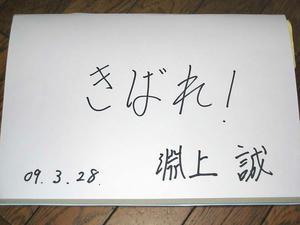 きばれ!
09.3.28. 淵上 誠